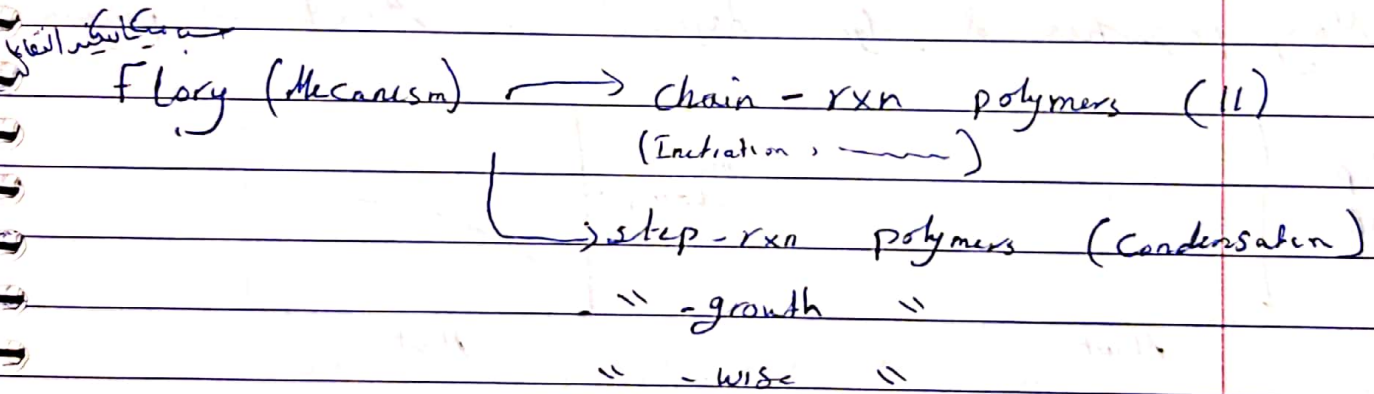 حسب ميكانيكية التفاعل
Flory (Mecanism) → chain - rxn polymers (11)
(Initiation, ——)
→ step - rxn polymers (Condensation)
" - growth "
" - wise "